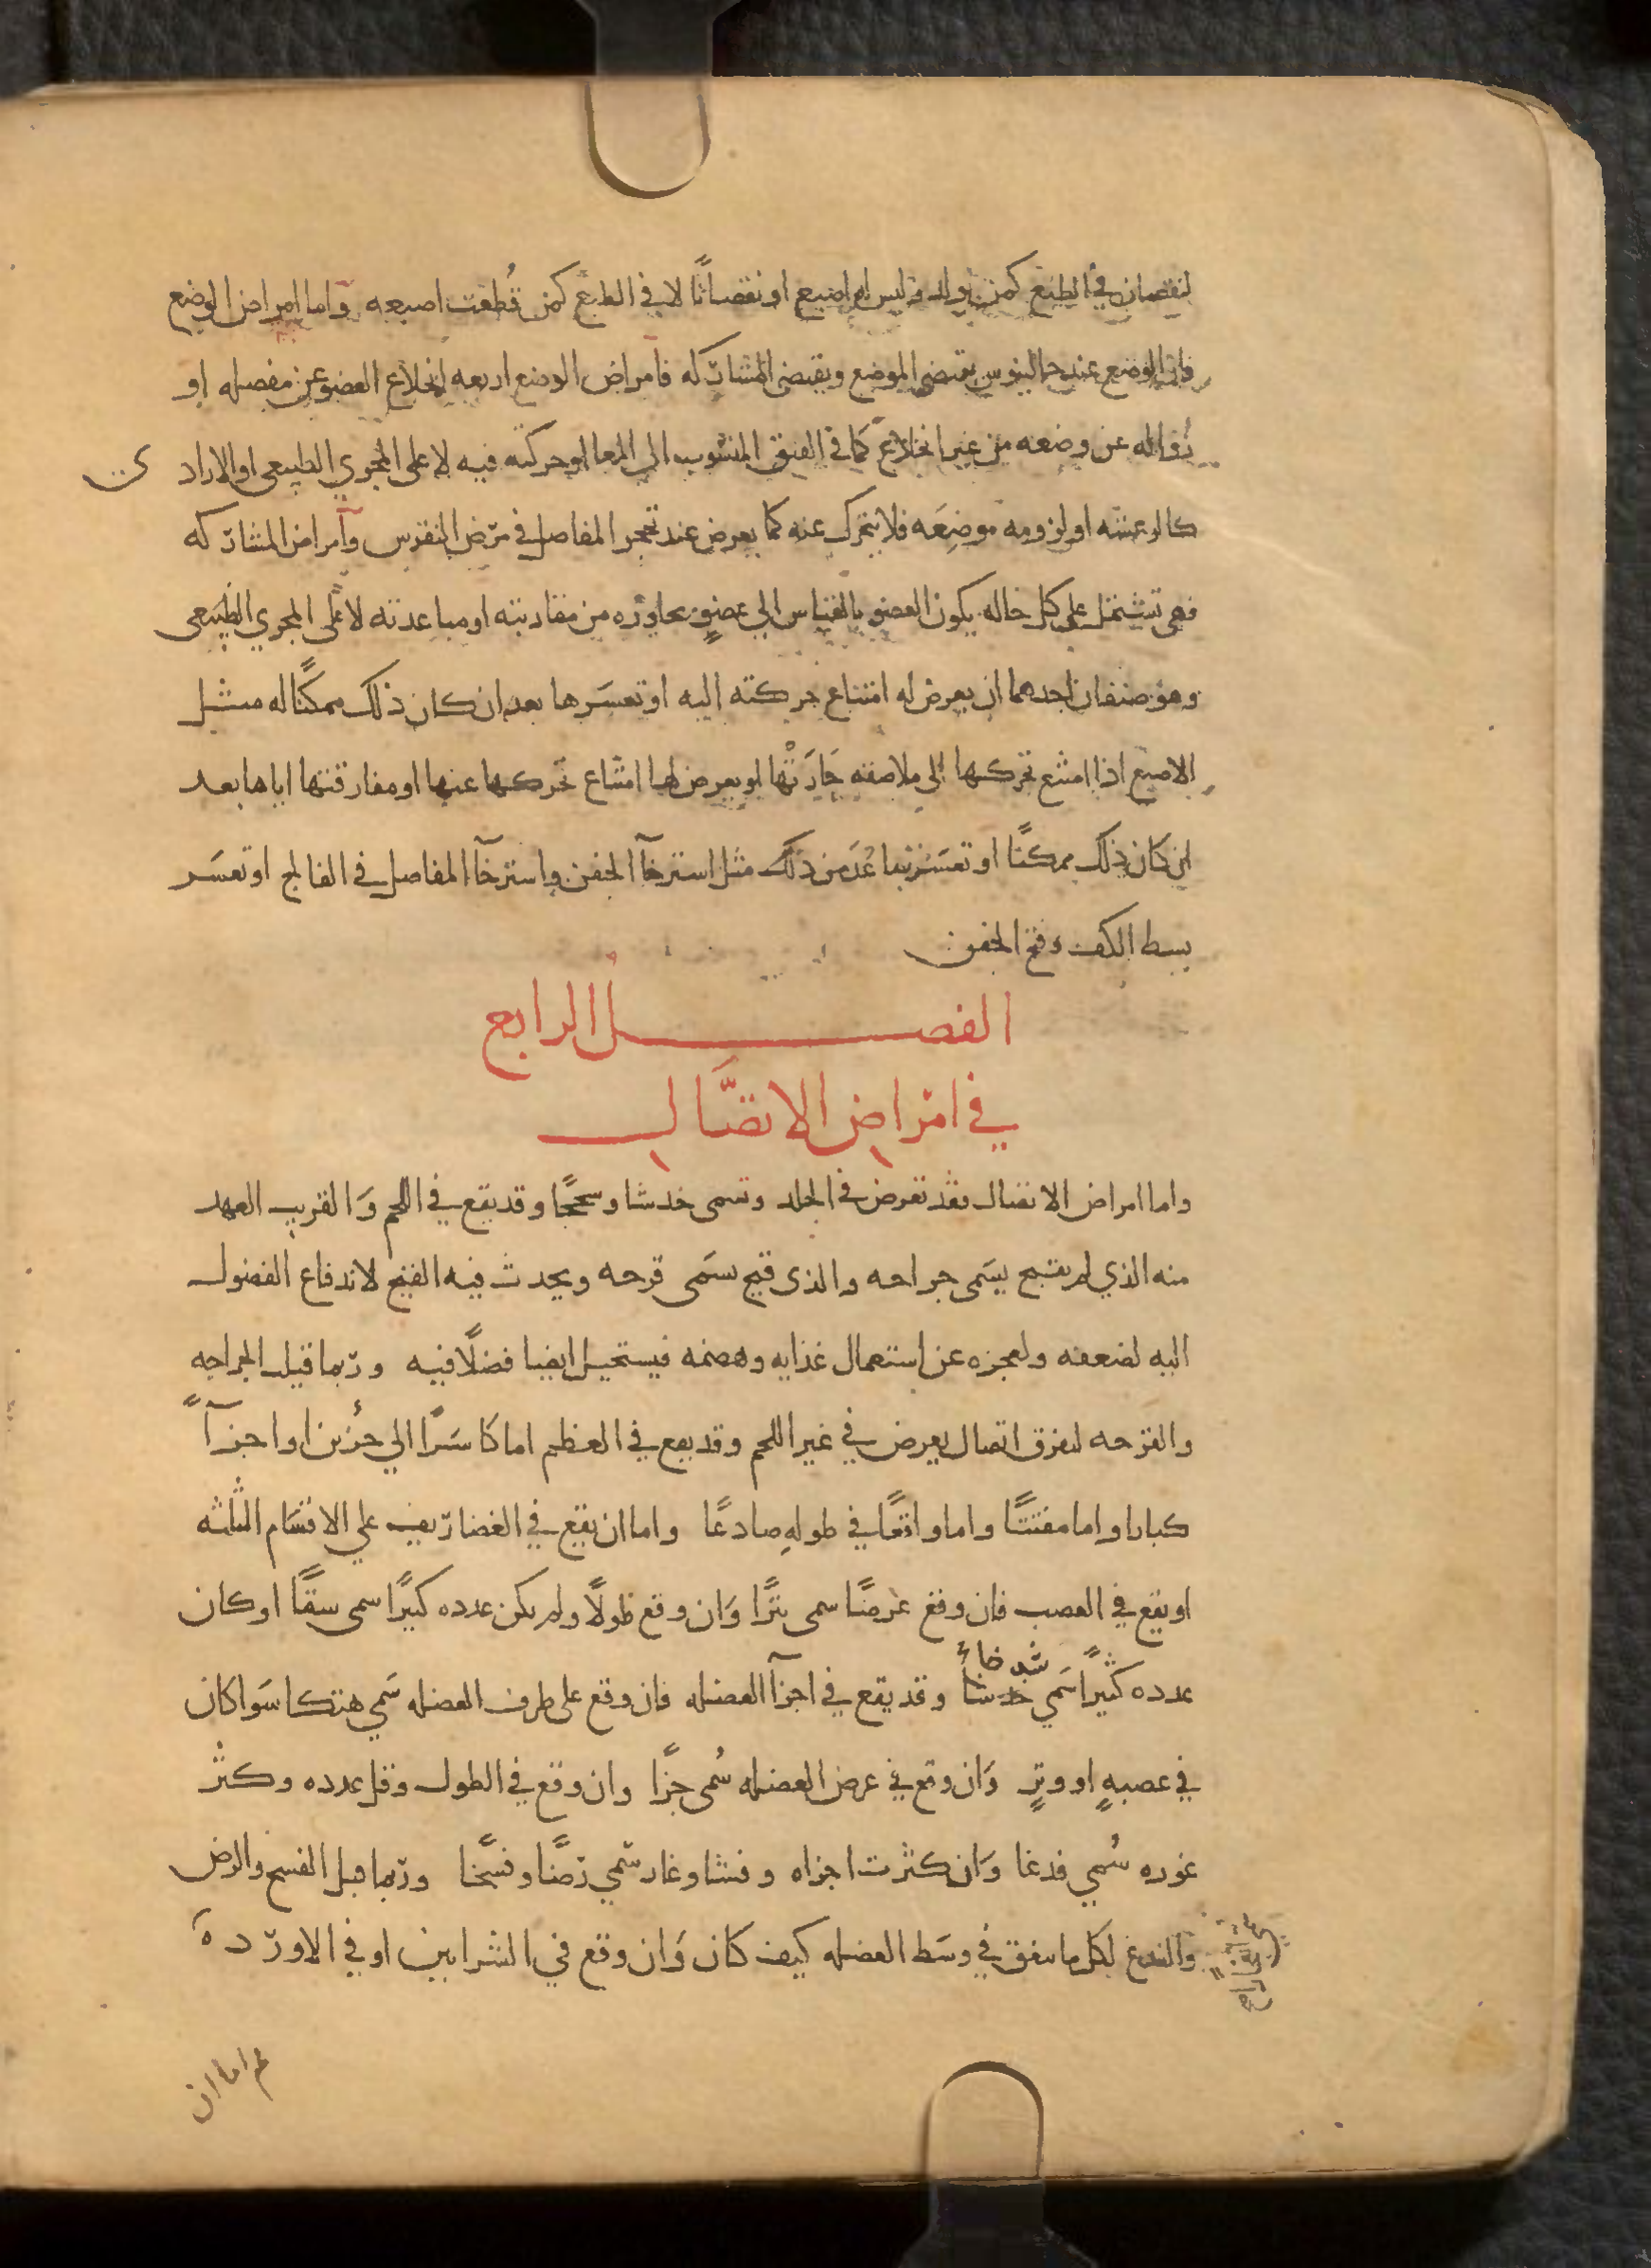 لنقصان في الطبع كمن يولد وليس له اصبع او نقصانًا لا في الطبع كمن قُطعت اصبعه واما امراض الوضع
فان الوضع عند جالينوس يقتضي الموضع ويقتضي المشاركه فامراض الوضع اربعه انخلاع العضو عن مفصله او
زواله عن وضعه من غير انخلاع كما في الفتق المنسوب الى المعا او حركته فيه لا على المجري الطبيعي او الاراد ى
كالرعشه او لزومه موضعَه فلا يتحرك عنه كما يعرض عند تحجر المفاصل في مرض النقرس وامراض المشاركه
فهى تشتمل على كل حاله يكون العضو بالقياس الي عضوٍ يجاوره من مقاربته او مباعدته لا على المجري الطبيعى
وهو صنفان احدهما ان يعرض له امتناع حركته اليه او تعسّرها بعد ان كان ذلك ممكنًا له مثل
الاصبع اذا امتنع تحركها الى ملاصقه جارتها او يعرض لها امتناع تحركها عنها او مفارقتها اياها بعد
ان كان ذلك ممكنًا او تعسر ذلك مثل استرخآ الجفن واسترخآ المفاصل في الفالج او تعسر
بسط الكف وفتح الجفن
الفصل الرابع
في امراض الاتصال
واما امراض الاتصال فقد تعرض في الجلد وتسمى خدشا وسحجًا وقد يقع في اللحم وَالقريب العهد
منه الذي لم يقيح يسَمى جراحه والذى قيح يسَمى قرحه ويحدث فيه القيح لاندفاع الفضول
اليه لضعفه ولعجزه عن استعمال غذايه وهضمه فيستحيل ايضا فضلًا فيه وربما قيل الجراحه
والقرحه لتفرق اتصال يعرض في غير اللحم وقد يقع في العظم اما كاسرًا الي جزئين او اجزآً
كبارا واما مفتتًا واما واقعًا في طولهِ صادعًا واما ان يقع في الغضاريف علي الاقسَام الثلثه
او يقع في العصب فان وقع عَرضًا سمى بترًا وَان وقع طولًا ولم يكن عدده كبيرًا سمى شقًا او كان
عدده كثيرًا سَمي شدخاً وقد يقع في اجزآ العضله فان وقع على طرف العضله سَمي هتكا سَوا كان
في عصبهٍ او وترٍ وَان وقع في عرض العضله سُمى جزًا وان وقع في الطول وقل عدده وكثر
غوره سُمي فدغا وَان كثرت اجزاه وفشا وغار سمّي رضًا وفسخًا وربما قيل الفسخ والرض
والفدغ لكل ما يتفق في وسَط العضله كيف كان وَان وقع في الشرايين او في الاورده